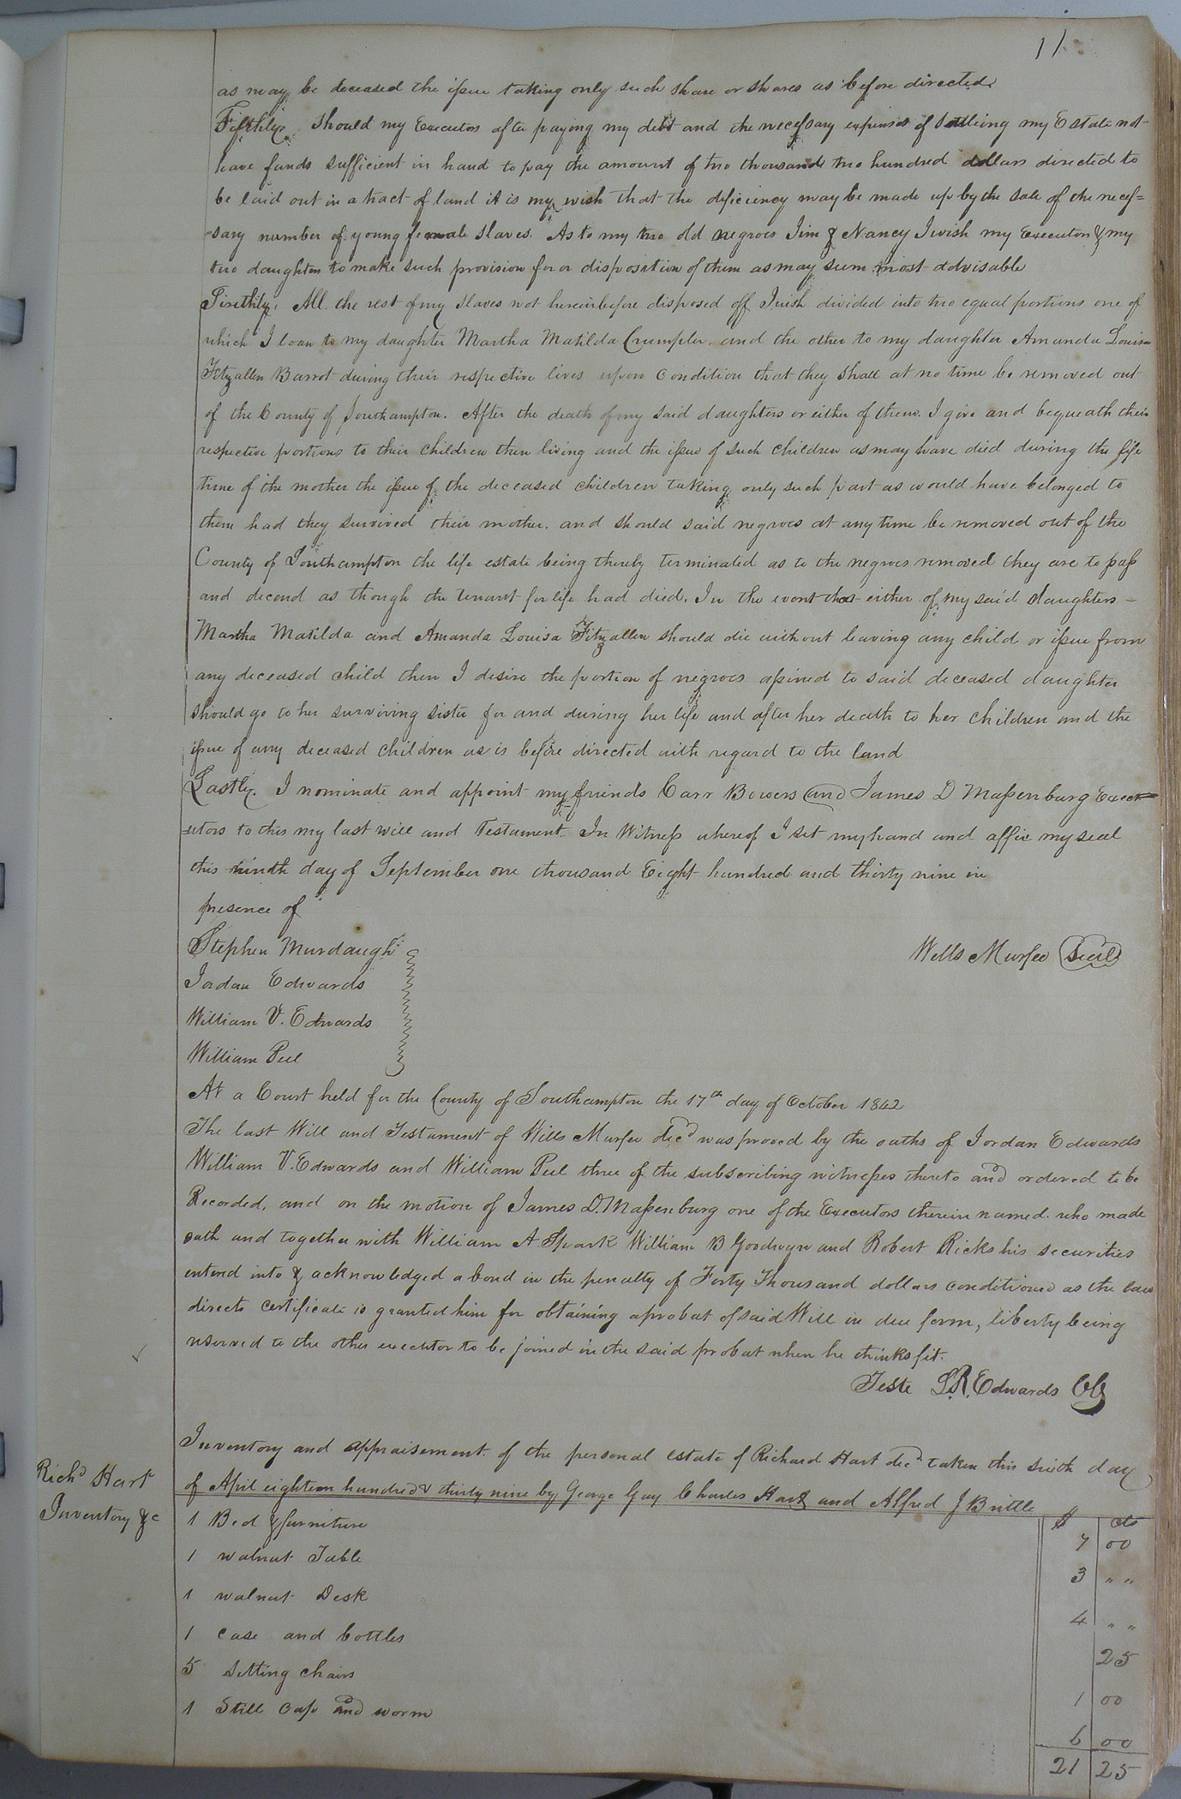 11
as may be deceased the issue taking only such share or shares as before directed
Fifthly. Should my Executors after paying my debt and the necessary expenses of Settleing my Estate not
have funds sufficient in hand to pay the amount of two thousand two hundred dollars directed to
be laid out in a tract of land it is my wish that the deficiency may be made up by the sale of the neces=
=sary number of young female slaves. As to my two old negroes Jim & Nancy I wish my Executors & my
two daughters to make such provision for or disposation of them as may seem most advisable
Sixthly. All the rest of my slaves not hereinbefore disposed off I wish divided into two equal portions one of
which I loan to my daughter Martha Matilda Crumpler and the other to my daughter Amanda Louisa
Fitzallen Barrot during their respective lives upon condition that they shall at no time be removed out
of the County of Southampton. After the death of my said daughters or either of them. I give and bequeath their
respective portions to their children then living and the issue of such children as may have died during the life
time of the mother the issue of the deceased children taking only such part as would have belonged to
them had they survived their mother. and should said negroes at any time be removed out of the
County of Southampton the life estate being thereby terminated as to the negroes removed they are to pass
and decend as though the tenant for life had died. In the event that either of my said daughters -
Martha Matilda and Amanda Louisa Fitzallen should die without leaving any child or issue from
any deceased child then I desire the portion of negroes assined to said deceased daughter
should go to her surviving sister for and during her life and after her death to her children and the
issue of any deceased children as is before directed with regard to the land
Lastly. I nominate and appoint my friends Carr Bowers and James D Massenburg Exect=
=utors to this my last will and Testament In Witness whereof I set my hand and affix my seal
this ninth day of September one thousand Eight hundred and thirty nine in
presence of
Stephen Murdaugh
Wills Murfee Seal
Jordan Edwards
William V. Edwards
William Peel
At a Court held for the County of Southampton the 17th day of October 1842
The last Will and Testament of Wills Murfee decd was proved by the oaths of Jordan Edwards
William V. Edwards and William Peel three of the subscribing witnesses thereto and ordered to be
Recorded, and on the motion of James D. Massenburg one of the Executors therein named. who made
oath and together with William A Spark William B Goodwyn and Robert Ricks his securities
enterd into & acknowledged a bond in the penalty of Forty Thousand dollars conditioned as the law
directs certificate is granted him for obtaining a probat of said Will in due form, liberty being
reserved to the other executor to be joined in the said probat when he thinks fit.
Teste L.R. Edwards CC
Inventory and appraisement of the personal estate of Richard Hart decd taken this sixth day
Richd Hart
of April eighteen hundred & thirty nine by George Gay Charles Hart and Alfred J Brittle
Inventory &c
$ cts
1 Bed & furniture 7 00
1 walnut Table 3 " "
1 walnut Desk 4 " "
1 case and bottles 25
5 Setting chairs 1 00
1 Still cap and worm 6 00
21 25